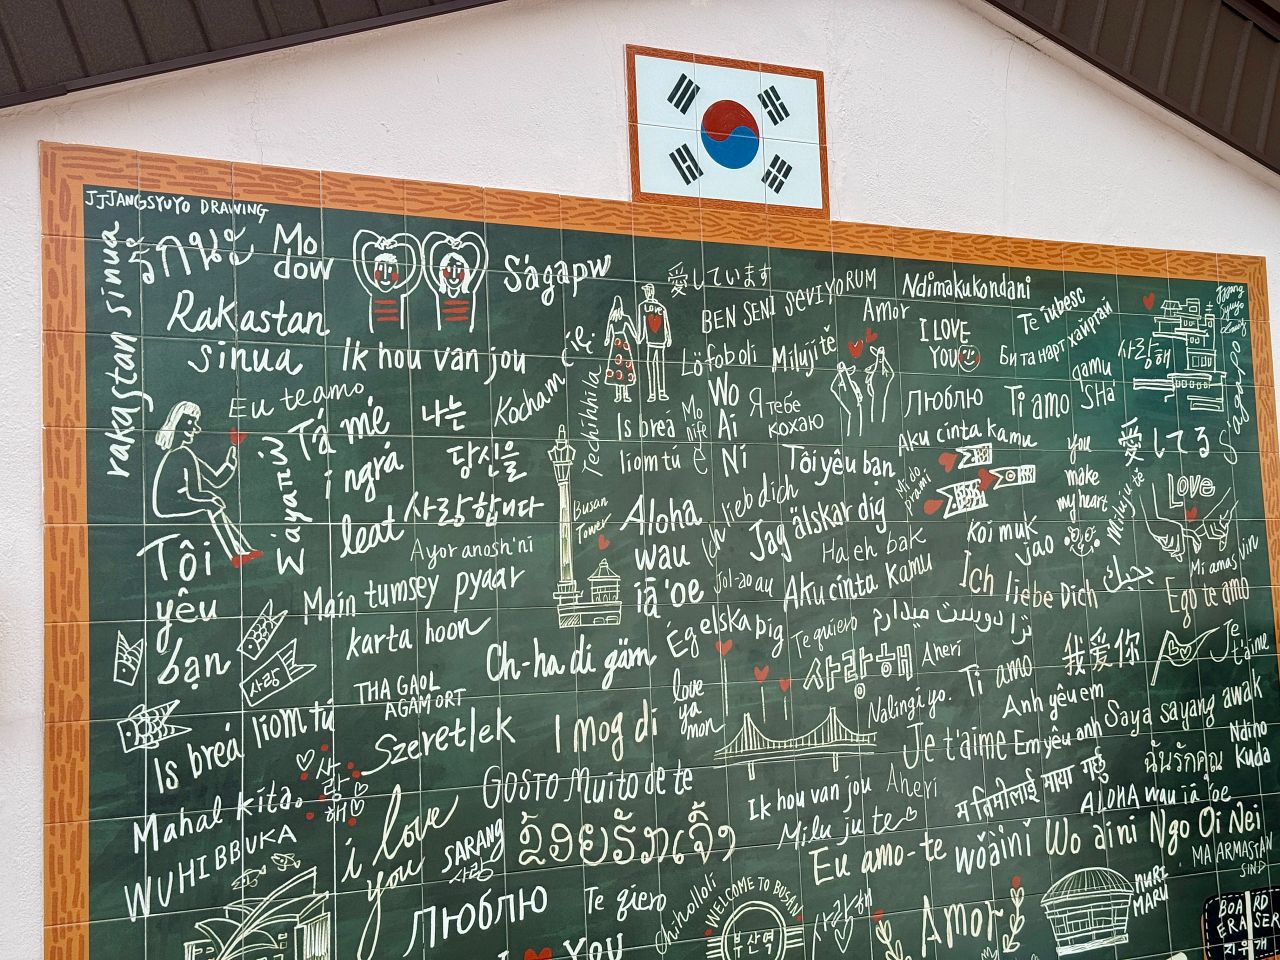 JJJANGSYUYO DRAWING
rakastan sinua
รักนะ
Mo
dow
Rakastan
sinua
Ik hou van jou
Eu te amo
Tá mé
i ngrá
leat
나는
당신을
사랑합니다
Kocham
cię.
Techihhila
Ságapw
愛しています
LOVE
BEN SENI SEVIYORUM
Amor
Ndimakukondani
Te iubesc
I LOVE
YOU
Би та нарт хайртай
사랑해
Löfoboli
Miluji tě
Wo
Ai
Ni
Я тебе
кохаю
люблю
Ti amo
Is breá
liom tú
Aku cinta kamu
you
make
my heart
愛してる
Love
Miluju te
Σ'αγαπώ
Tôi
yêu
bạn
Ayor anosh'ni
Busan
Tower
Aloha
wau
iā 'oe
Ich lieb dich
Tôi yêu bạn
Jag älskar dig
Ha eh bak
Koi muk
Jao
Main tumsey pyaar
karta hoon
Aku cinta kamu
Ich liebe Dich
بحبك
Mi amas vin
Ego te amo
Ég elska þig
Te quiero
ترا دوست میدارم
Ch-ha di gäm
사랑해
Aheri
Ti amo
我爱你
Je
t'aime
사랑
THA GAOL
AGAM ORT
love
ya
mon
Nalingi yo.
Anh yêu em
Em yêu anh
Saya sayang awak
Is breá liom tú
Szeretlek
I mog di
Je t'aime
ฉันรักคุณ
Ndino
Kuda
사
랑
해
GOSTO Muito de te
Ik hou van jou
Aheri
म तिमीलाई माया गर्छु
ALOHA wau iā 'oe
Mahal kita.
WUHIBBUKA
i love
you
SARANG
사랑
ຂ້ອຍຮັກເຈົ້າ
Milu ju te
Eu amo-te
wǒàinǐ
Wo ai ni
Ngo Oi Nei
MA ARMASTAN
SIND
люблю
Te qiero
chiholloli
WELCOME TO BUSAN
부산역
사랑해
Amor
NURI
MARU
BOARD
ERASER
지우개
YOU